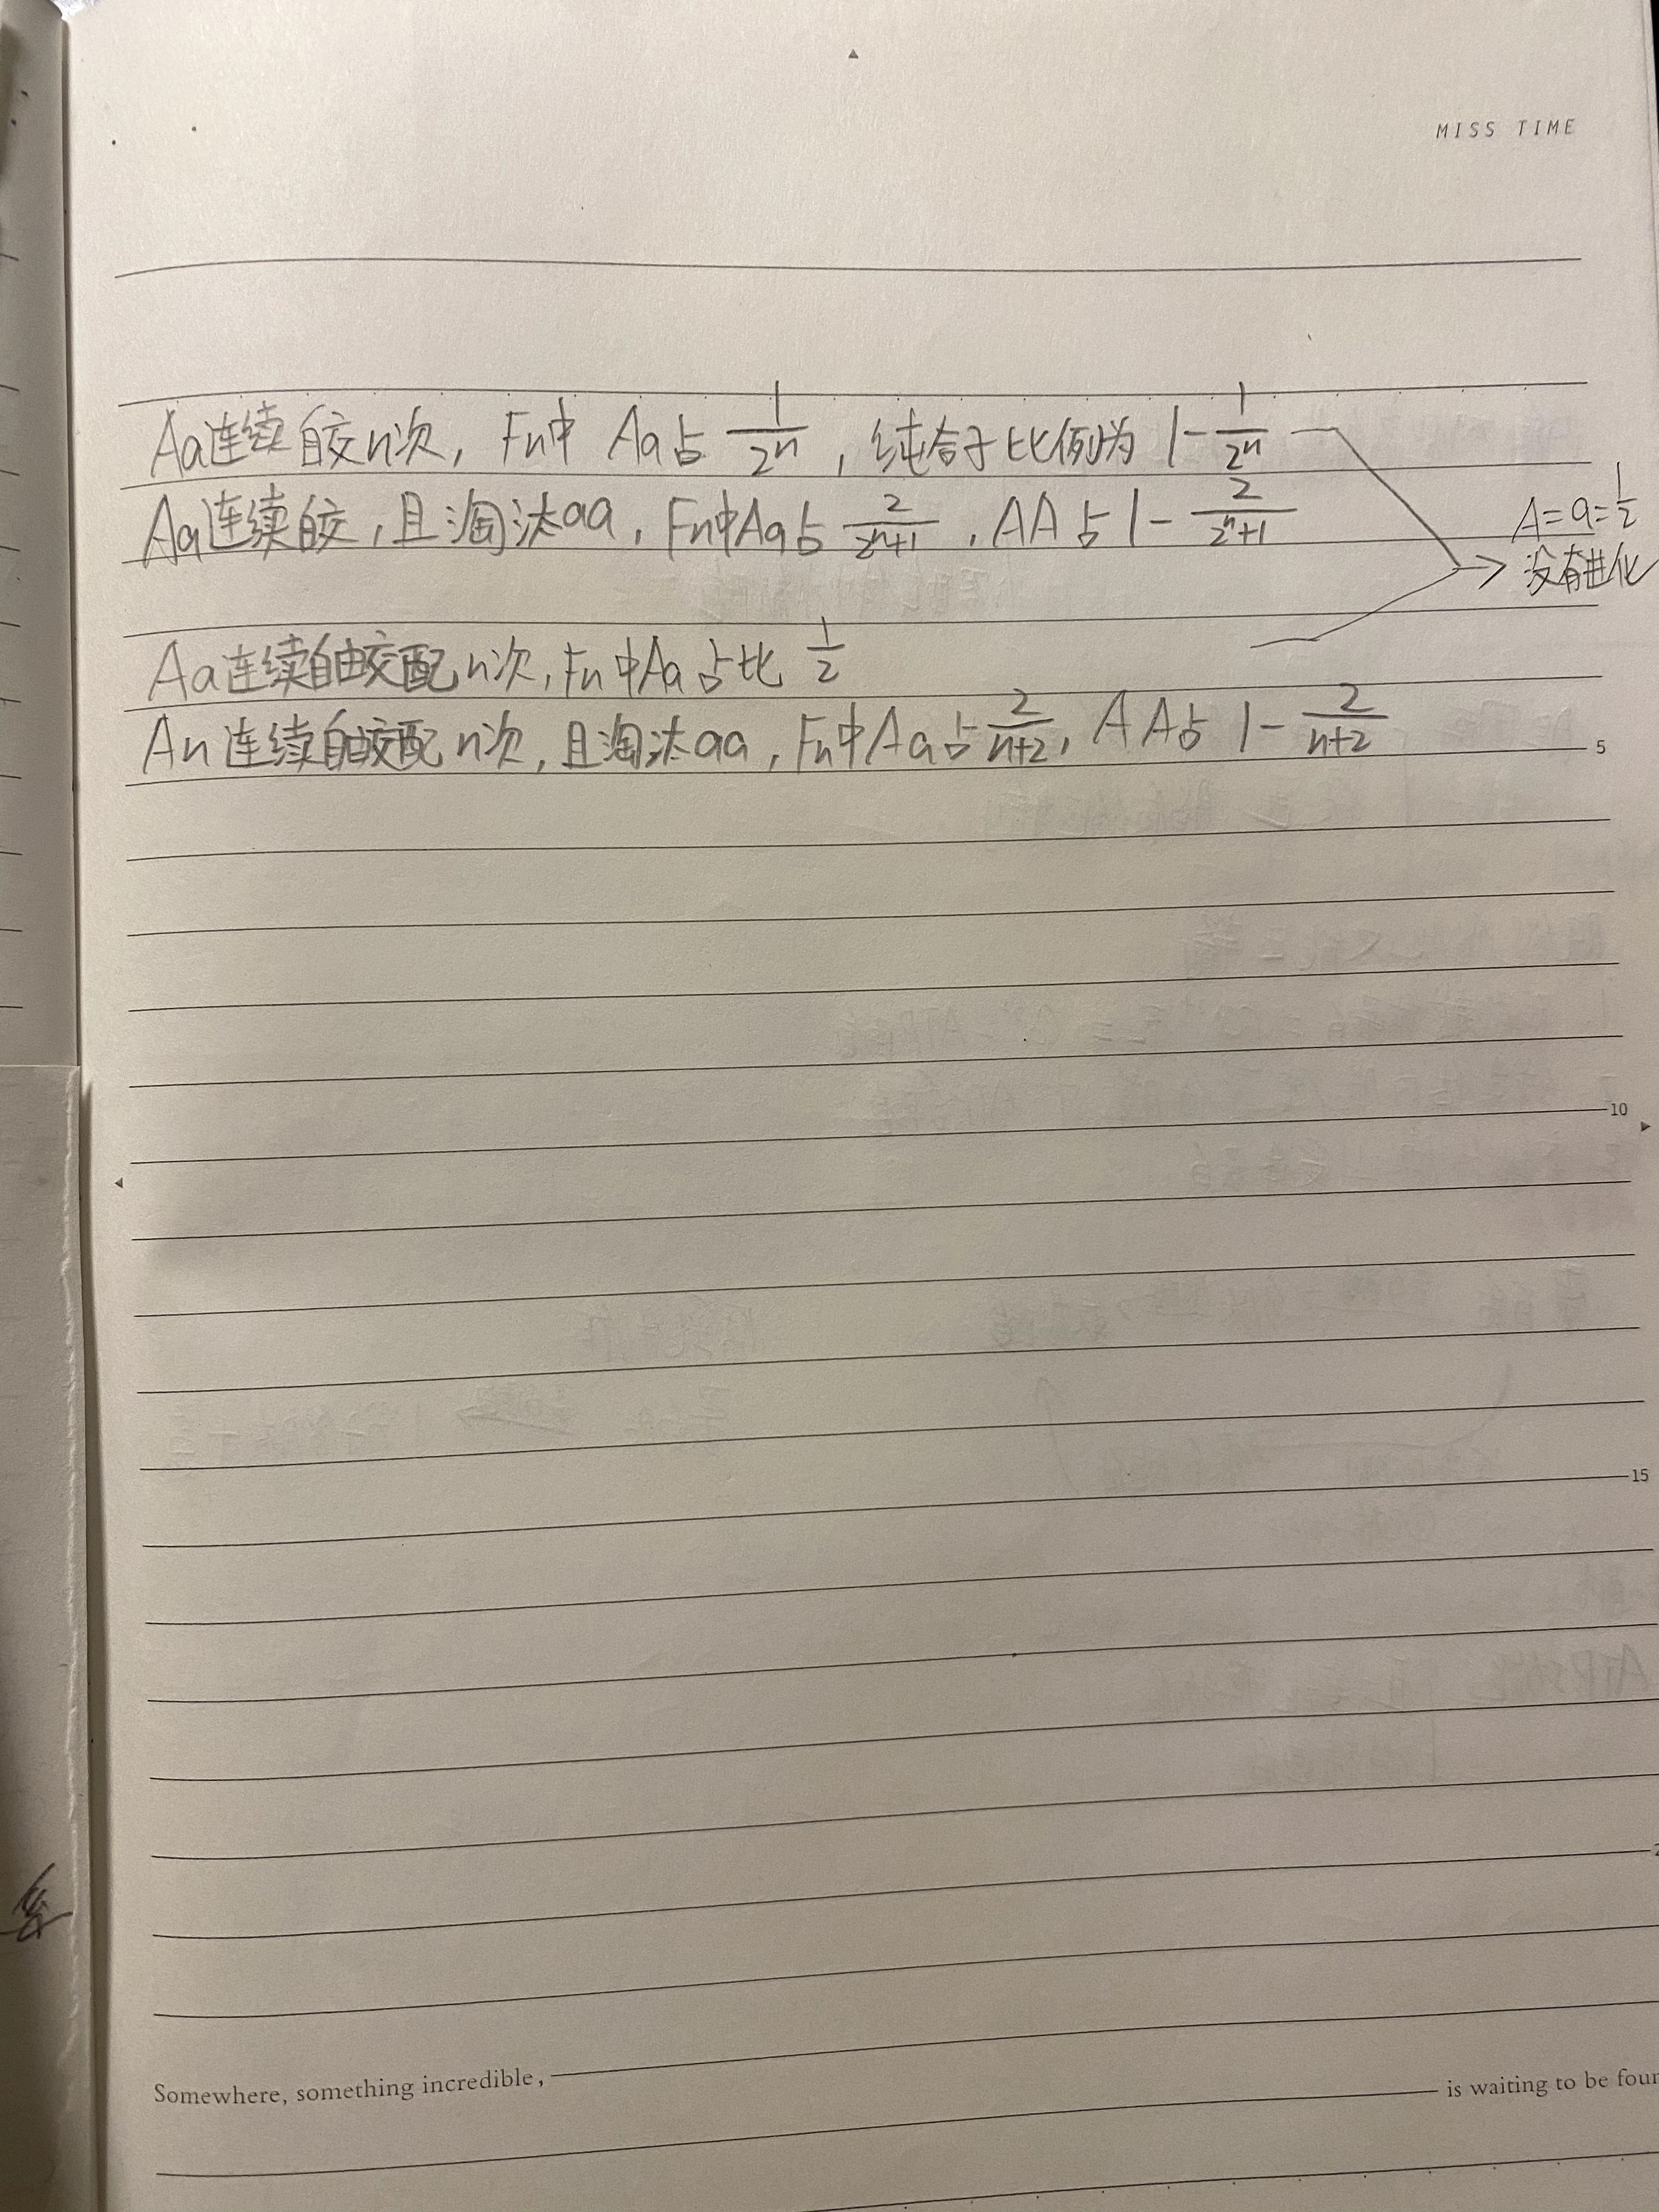 MISS TIME
Aa连续自交n次, Fn中 Aa占 1/2ⁿ, 纯合子比例为 1-1/2ⁿ
Aa连续自交, 且淘汰aa, Fn中Aa占 2/2ⁿ+1, AA占 1-2/2ⁿ+1
A=a=1/2
没有进化
Aa连续自由交配n次, Fn中Aa占比 1/2
An连续自由交配n次, 且淘汰aa, Fn中Aa占 2/n+2, AA占 1-2/n+2
5
10
15
Somewhere, something incredible, is waiting to be foun